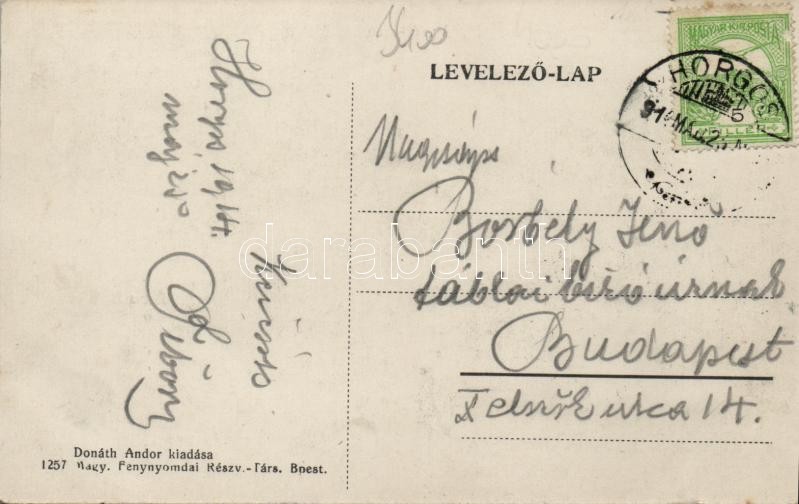 3400
LEVELEZŐ-LAP
MAGYAR KIR. POSTA
HORGOS
914 MÁJ 2
FILLÉR
Horgos, 1914.
máj 25
Nagyságos
Borbély Jenő
táblai bíró úrnak
Budapest
X Felsőerdő utca 14.
darabanth
Donáth Andor kiadása
1257 Magy. Fenynyomdai Részv.-Társ. Bpest.